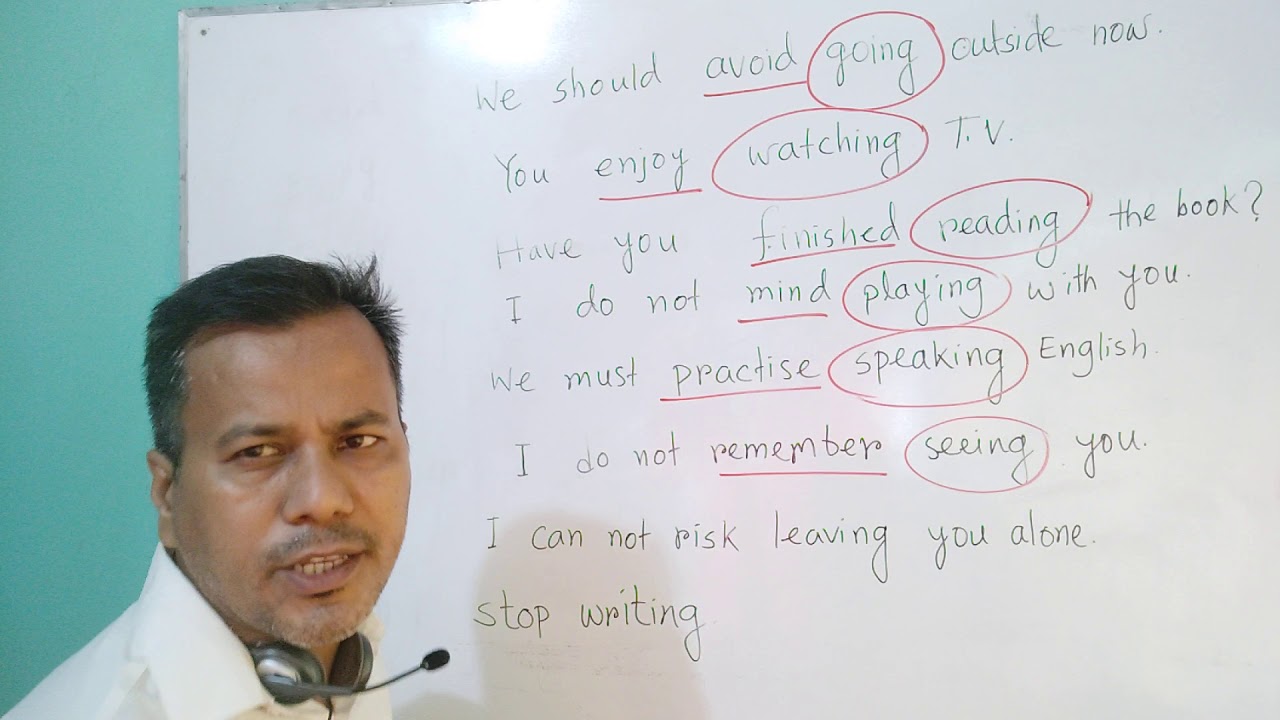 We should avoid going outside now.
You enjoy watching T.V.
Have you finished reading the book?
I do not mind playing with you.
We must practise speaking English.
I do not remember seeing you.
I can not risk leaving you alone.
Stop writing